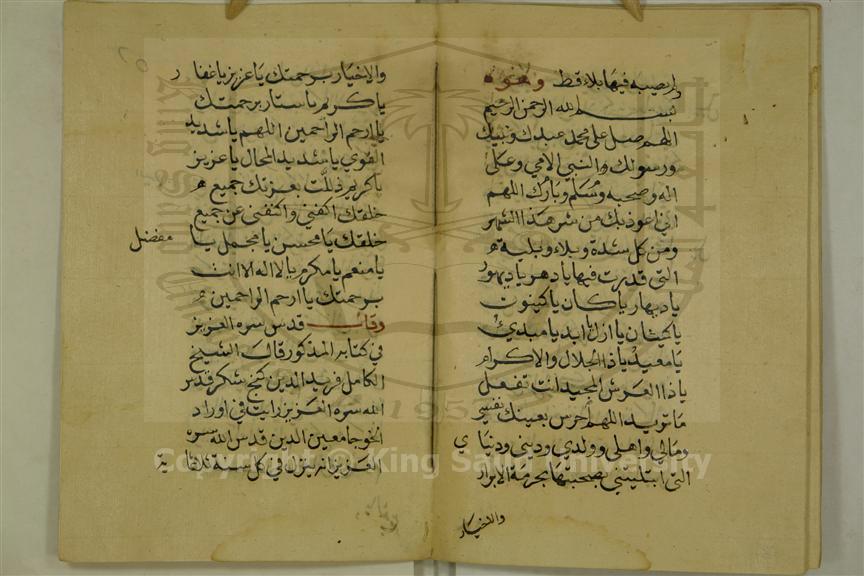 لم يصبه فيها بلاء قط وهو هذا
بسم الله الرحمن الرحيم
اللهم صل على محمد عبدك ونبيك
ورسولك والنبي الامي وعلى
اله وصحبه وسلم وبارك اللهم
اني اعوذ بك من شر هذا الشهر
ومن كل شدة وبلاء وبلية
التي قدرت فيها يا دهر يا ديهور
يا ديهار يا كان يا كينون
يا كينان يا ازل يا ابد يا مبدئ
يا معيد يا ذا الجلال والاكرام
يا ذا العرش المجيد انت تفعل
ما تريد اللهم احرس بعينك نفسي
ومالي واهلي وولدي وديني ودنياي
التي ابتليتني بصحبتها بحرمة الابرار
والاخيار
والاخيار برحمتك يا عزيز يا غفار
يا كريم يا ستار برحمتك
يا ارحم الراحمين اللهم يا شديد
القوي يا شديد المحال يا عزيز
يا كريم ذللت بعزتك جميع
خلقك اكفني واكنفني عن جميع
خلقك يا محسن يا مجمل يا مفضل
يا منعم يا مكرم يا لا اله الا انت
برحمتك يا ارحم الراحمين
وقال قدس سره العزيز
في كتابه المذكور قال الشيخ
الكامل فريد الدين كنج شكر قدس
الله سره العزيز رايت في اوراد
الخوجا معين الدين قدس الله سره
العزيز انه ينزل في كل سنة ثلاثماية
Copyright © King Saud University
1957